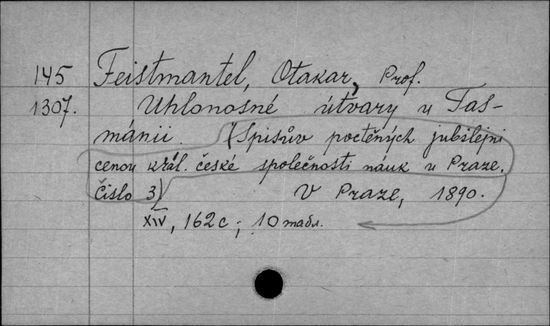 145 Feistmantel, Otakar, Prof.
1307. Uhlonosné útvary u Tas-
mánii. (Spisův poctěných jubilejni
cenou král. české společnosti náuk u Praze.
Čislo 3) V Praze, 1890.
XIV, 162 c; 10 табл.